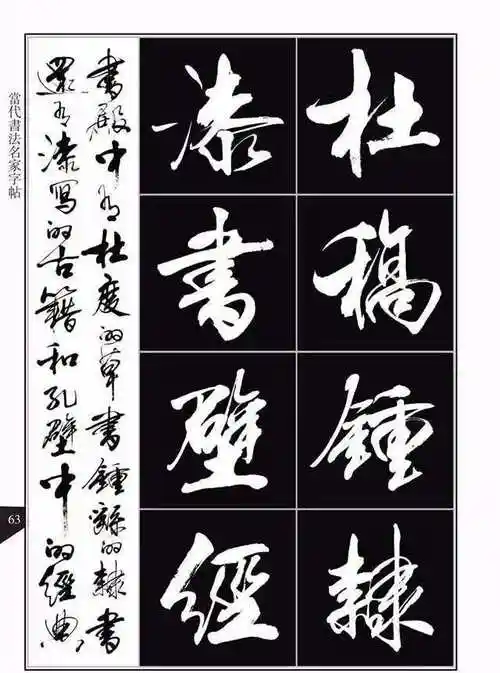 杜稿鍾隸
漆書壁經
書殿中有杜度的草書鍾繇的隸書
還有漆寫的古籍和孔壁中的經典
當代書法名家字帖
63